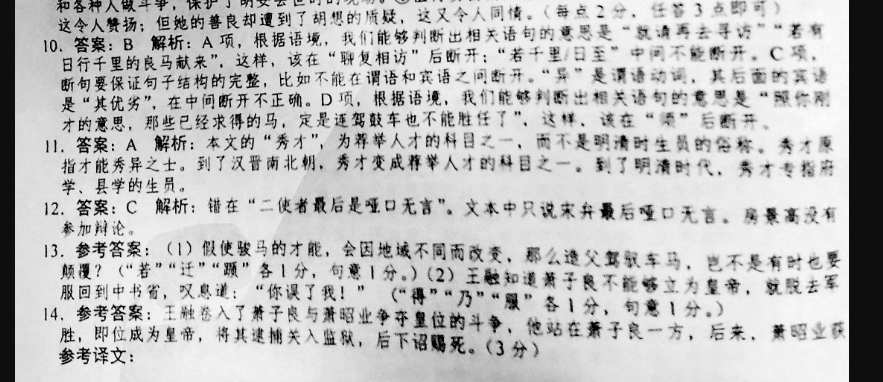 和各种人做斗争，保护了胡安去世时的现场。
这令人赞扬；但她的善良却遭到了胡想的质疑，这又令人同情。（每点2分，任答3点即可）
10. 答案：B  解析：A项，根据语境，我们能够判断出相关语句的意思是“就请再去寻访”“若有
日行千里的良马献来”，这样，该在“聊复相访”后断开；“若千里/日至”中间不能断开。C项，
断句要保证句子结构的完整，比如不能在谓语和宾语之间断开。“异”是谓语动词，其后面的宾语
是“其优劣”，在中间断开不正确。D项，根据语境，我们能够判断出相关语句的意思是“照你刚
才的意思，那些已经求得的马，定是连驾鼓车也不能胜任了”，这样，该在“须”后断开。
11. 答案：A  解析：本文的“秀才”，为荐举人才的科目之一，而不是明清时生员的俗称。秀才原
指才能秀异之士。到了汉晋南北朝，秀才变成荐举人才的科目之一。到了明清时代，秀才专指府
学、县学的生员。
12. 答案：C  解析：错在“二使者最后是哑口无言”。文本中只说宋弁最后哑口无言。房景高没有
参加辩论。
13. 参考答案：（1）假使骏马的才能，会因地域不同而改变，那么造父驾驭车马，岂不是有时也要
颠覆？（“若”“迁”“踬”各1分，句意1分。）（2）王融知道萧子良不能够立为皇帝，就脱去军
服回到中书省，叹息道：“你误了我！”（“得”“乃”“服”各1分，句意1分。）
14. 参考答案：王融卷入了萧子良与萧昭业争夺皇位的斗争，他站在萧子良一方，后来，萧昭业获
胜，即位成为皇帝，将其逮捕关入监狱，后下诏赐死。（3分）
参考译文：